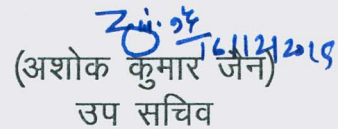 16/12/2015
(अशोक कुमार जैन)
उप सचिव